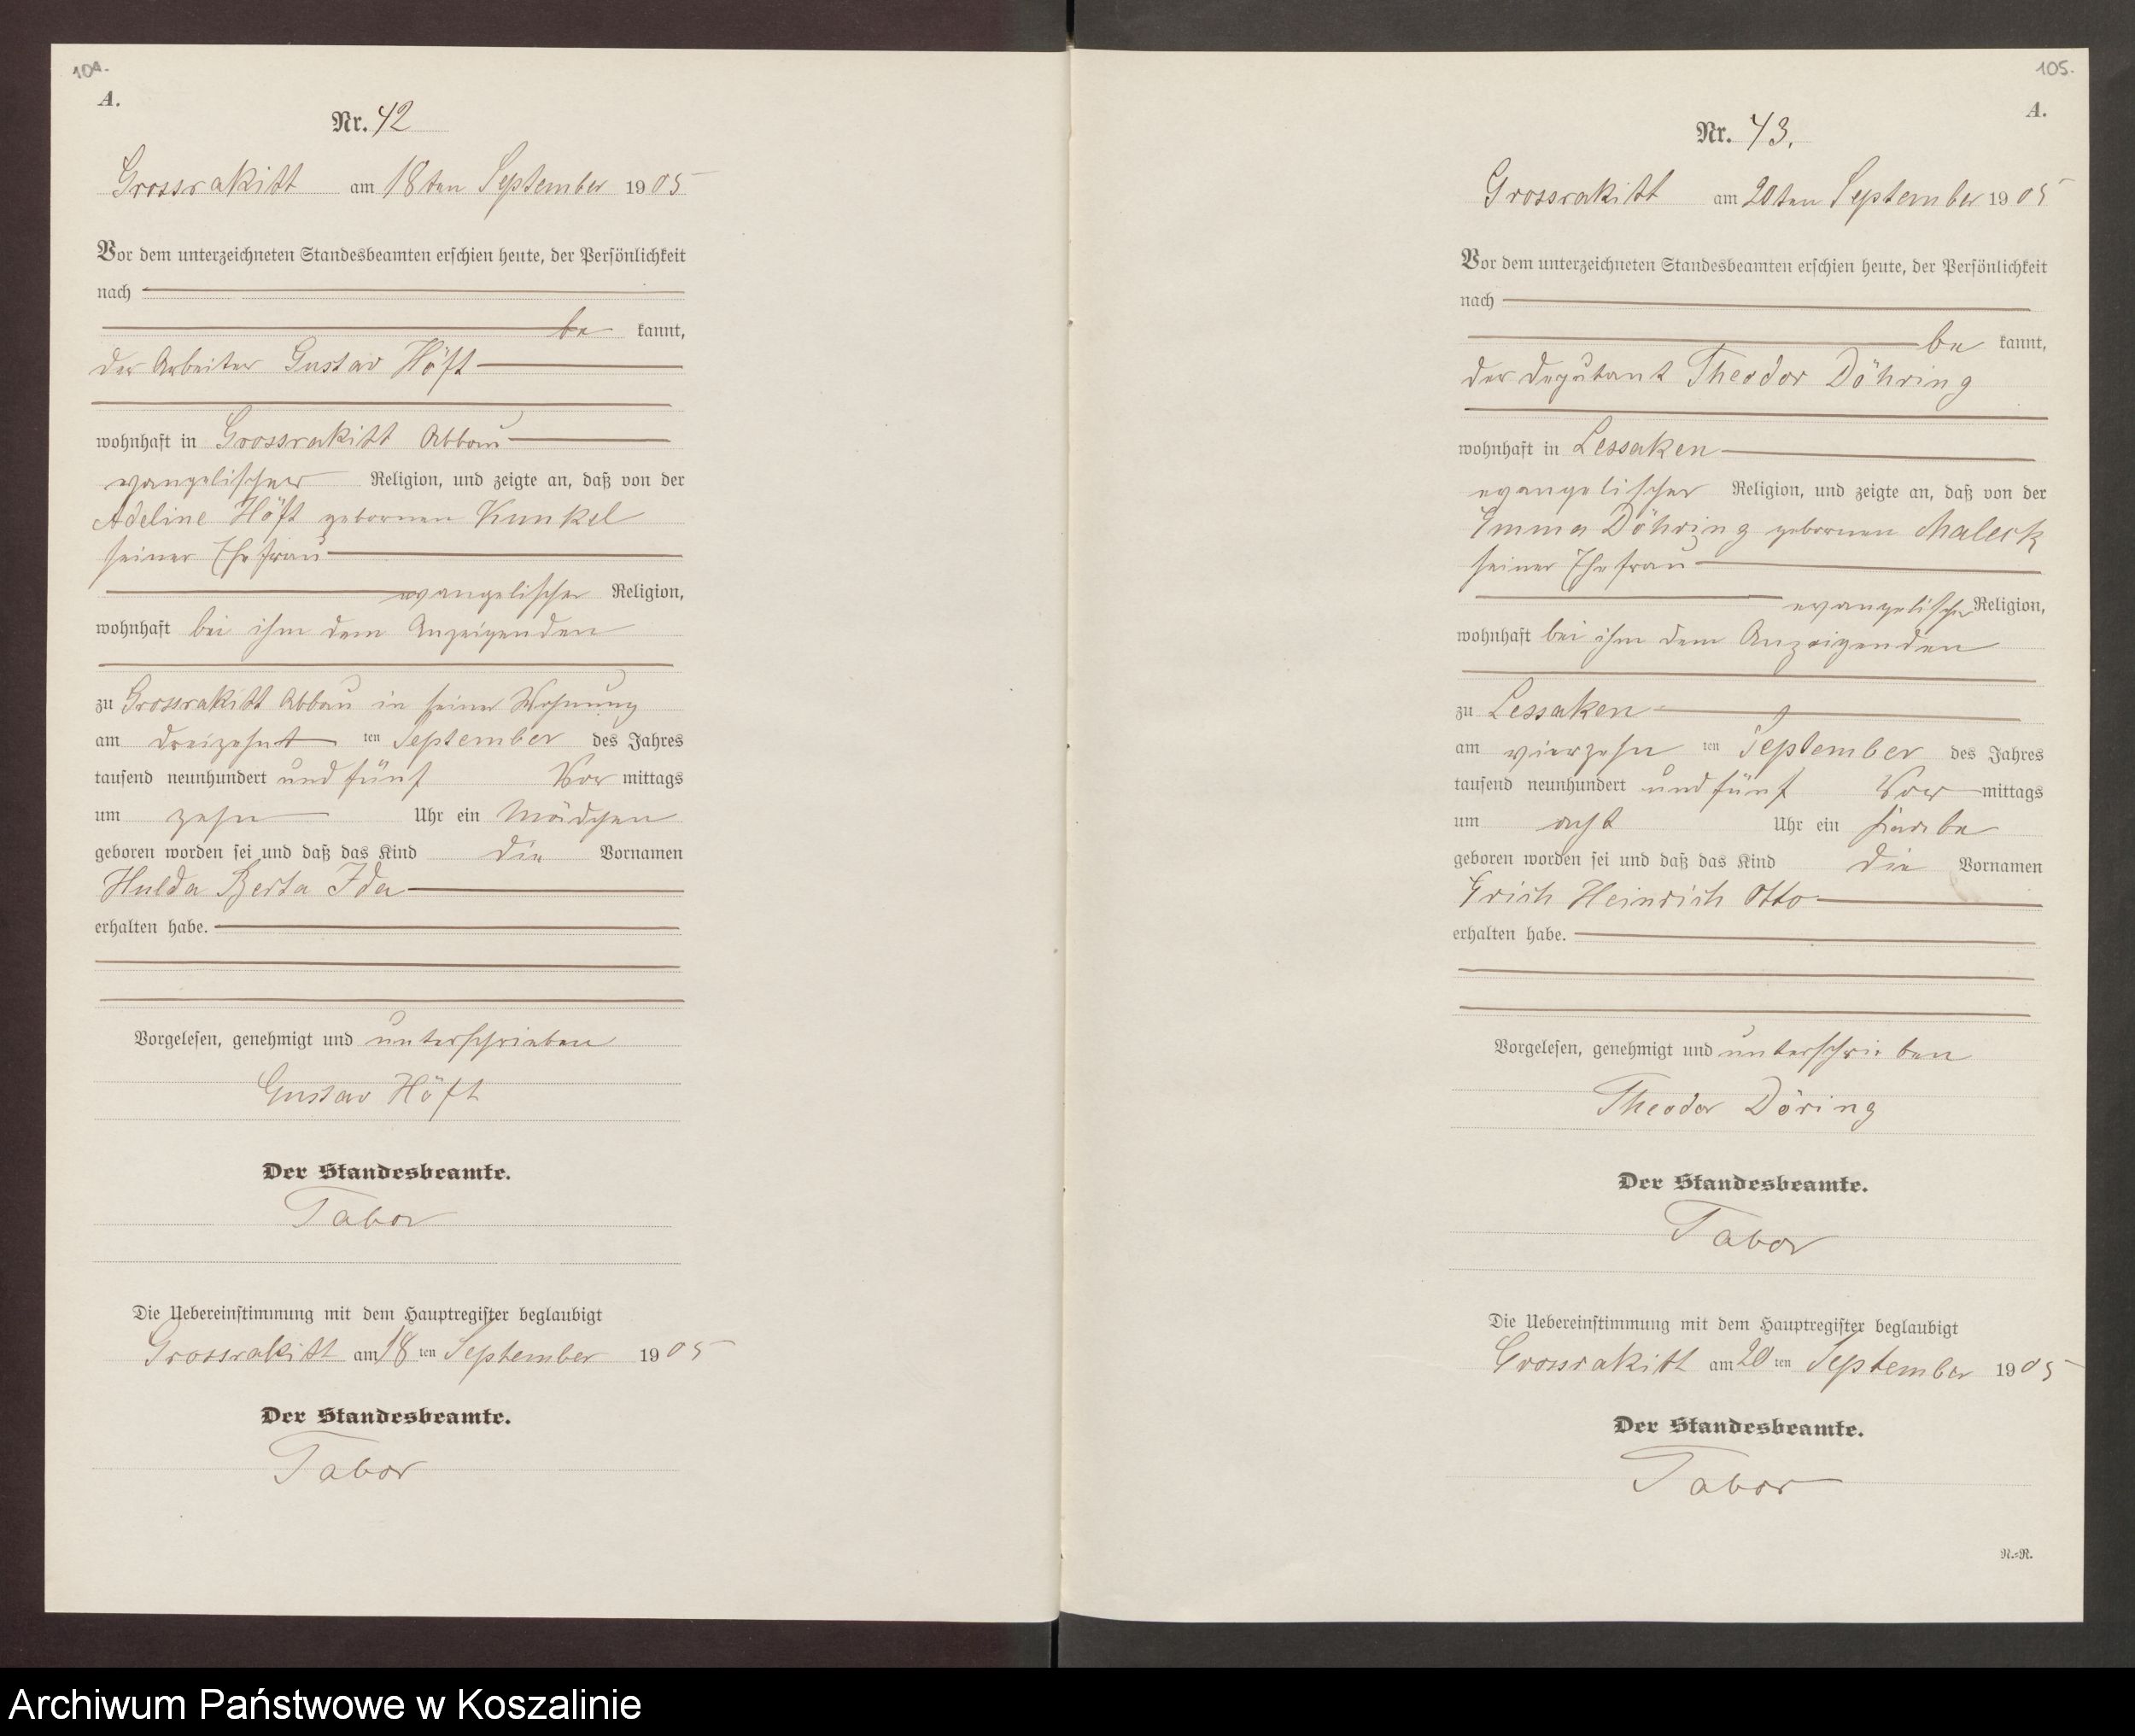 104.
A.
Nr. 42
Grossrakitt am 18ten September 1905
Vor dem unterzeichneten Standesbeamten erschien heute, der Persönlichkeit
nach
be kannt,
der Arbeiter Gustav Höft
wohnhaft in Grossrakitt Abbau
evangelischer Religion, und zeigte an, daß von der
Adeline Höft gebornen Kunkel
seiner Ehefrau
evangelischer Religion,
wohnhaft bei ihm dem Anzeigenden
zu Grossrakitt Abbau in seiner Wohnung
am dreizehnt ten September des Jahres
tausend neunhundert und fünf Vor mittags
um zehn Uhr ein Mädchen
geboren worden sei und daß das Kind die Vornamen
Hulda Berta Ida
erhalten habe.
Vorgelesen, genehmigt und unterschrieben
Gustav Höft
Der Standesbeamte.
Tabor
Die Uebereinstimmung mit dem Hauptregister beglaubigt
Grossrakitt am 18 ten September 1905
Der Standesbeamte.
Tabor
105.
A.
Nr. 43.
Grossrakitt am 20ten September 1905
Vor dem unterzeichneten Standesbeamten erschien heute, der Persönlichkeit
nach
be kannt,
der Deputant Theodor Döhring
wohnhaft in Lessaken
evangelischer Religion, und zeigte an, daß von der
Emma Döhring gebornen Maleck
seiner Ehefrau
evangelischer Religion,
wohnhaft bei ihm dem Anzeigenden
zu Lessaken
am vierzehn ten September des Jahres
tausend neunhundert und fünf Vor mittags
um acht Uhr ein Knabe
geboren worden sei und daß das Kind die Vornamen
Erich Heinrich Otto
erhalten habe.
Vorgelesen, genehmigt und unterschrieben
Theodor Döring
Der Standesbeamte.
Tabor
Die Uebereinstimmung mit dem Hauptregister beglaubigt
Grossrakitt am 20 ten September 1905
Der Standesbeamte.
Tabor
R.=R.
Archiwum Państwowe w Koszalinie